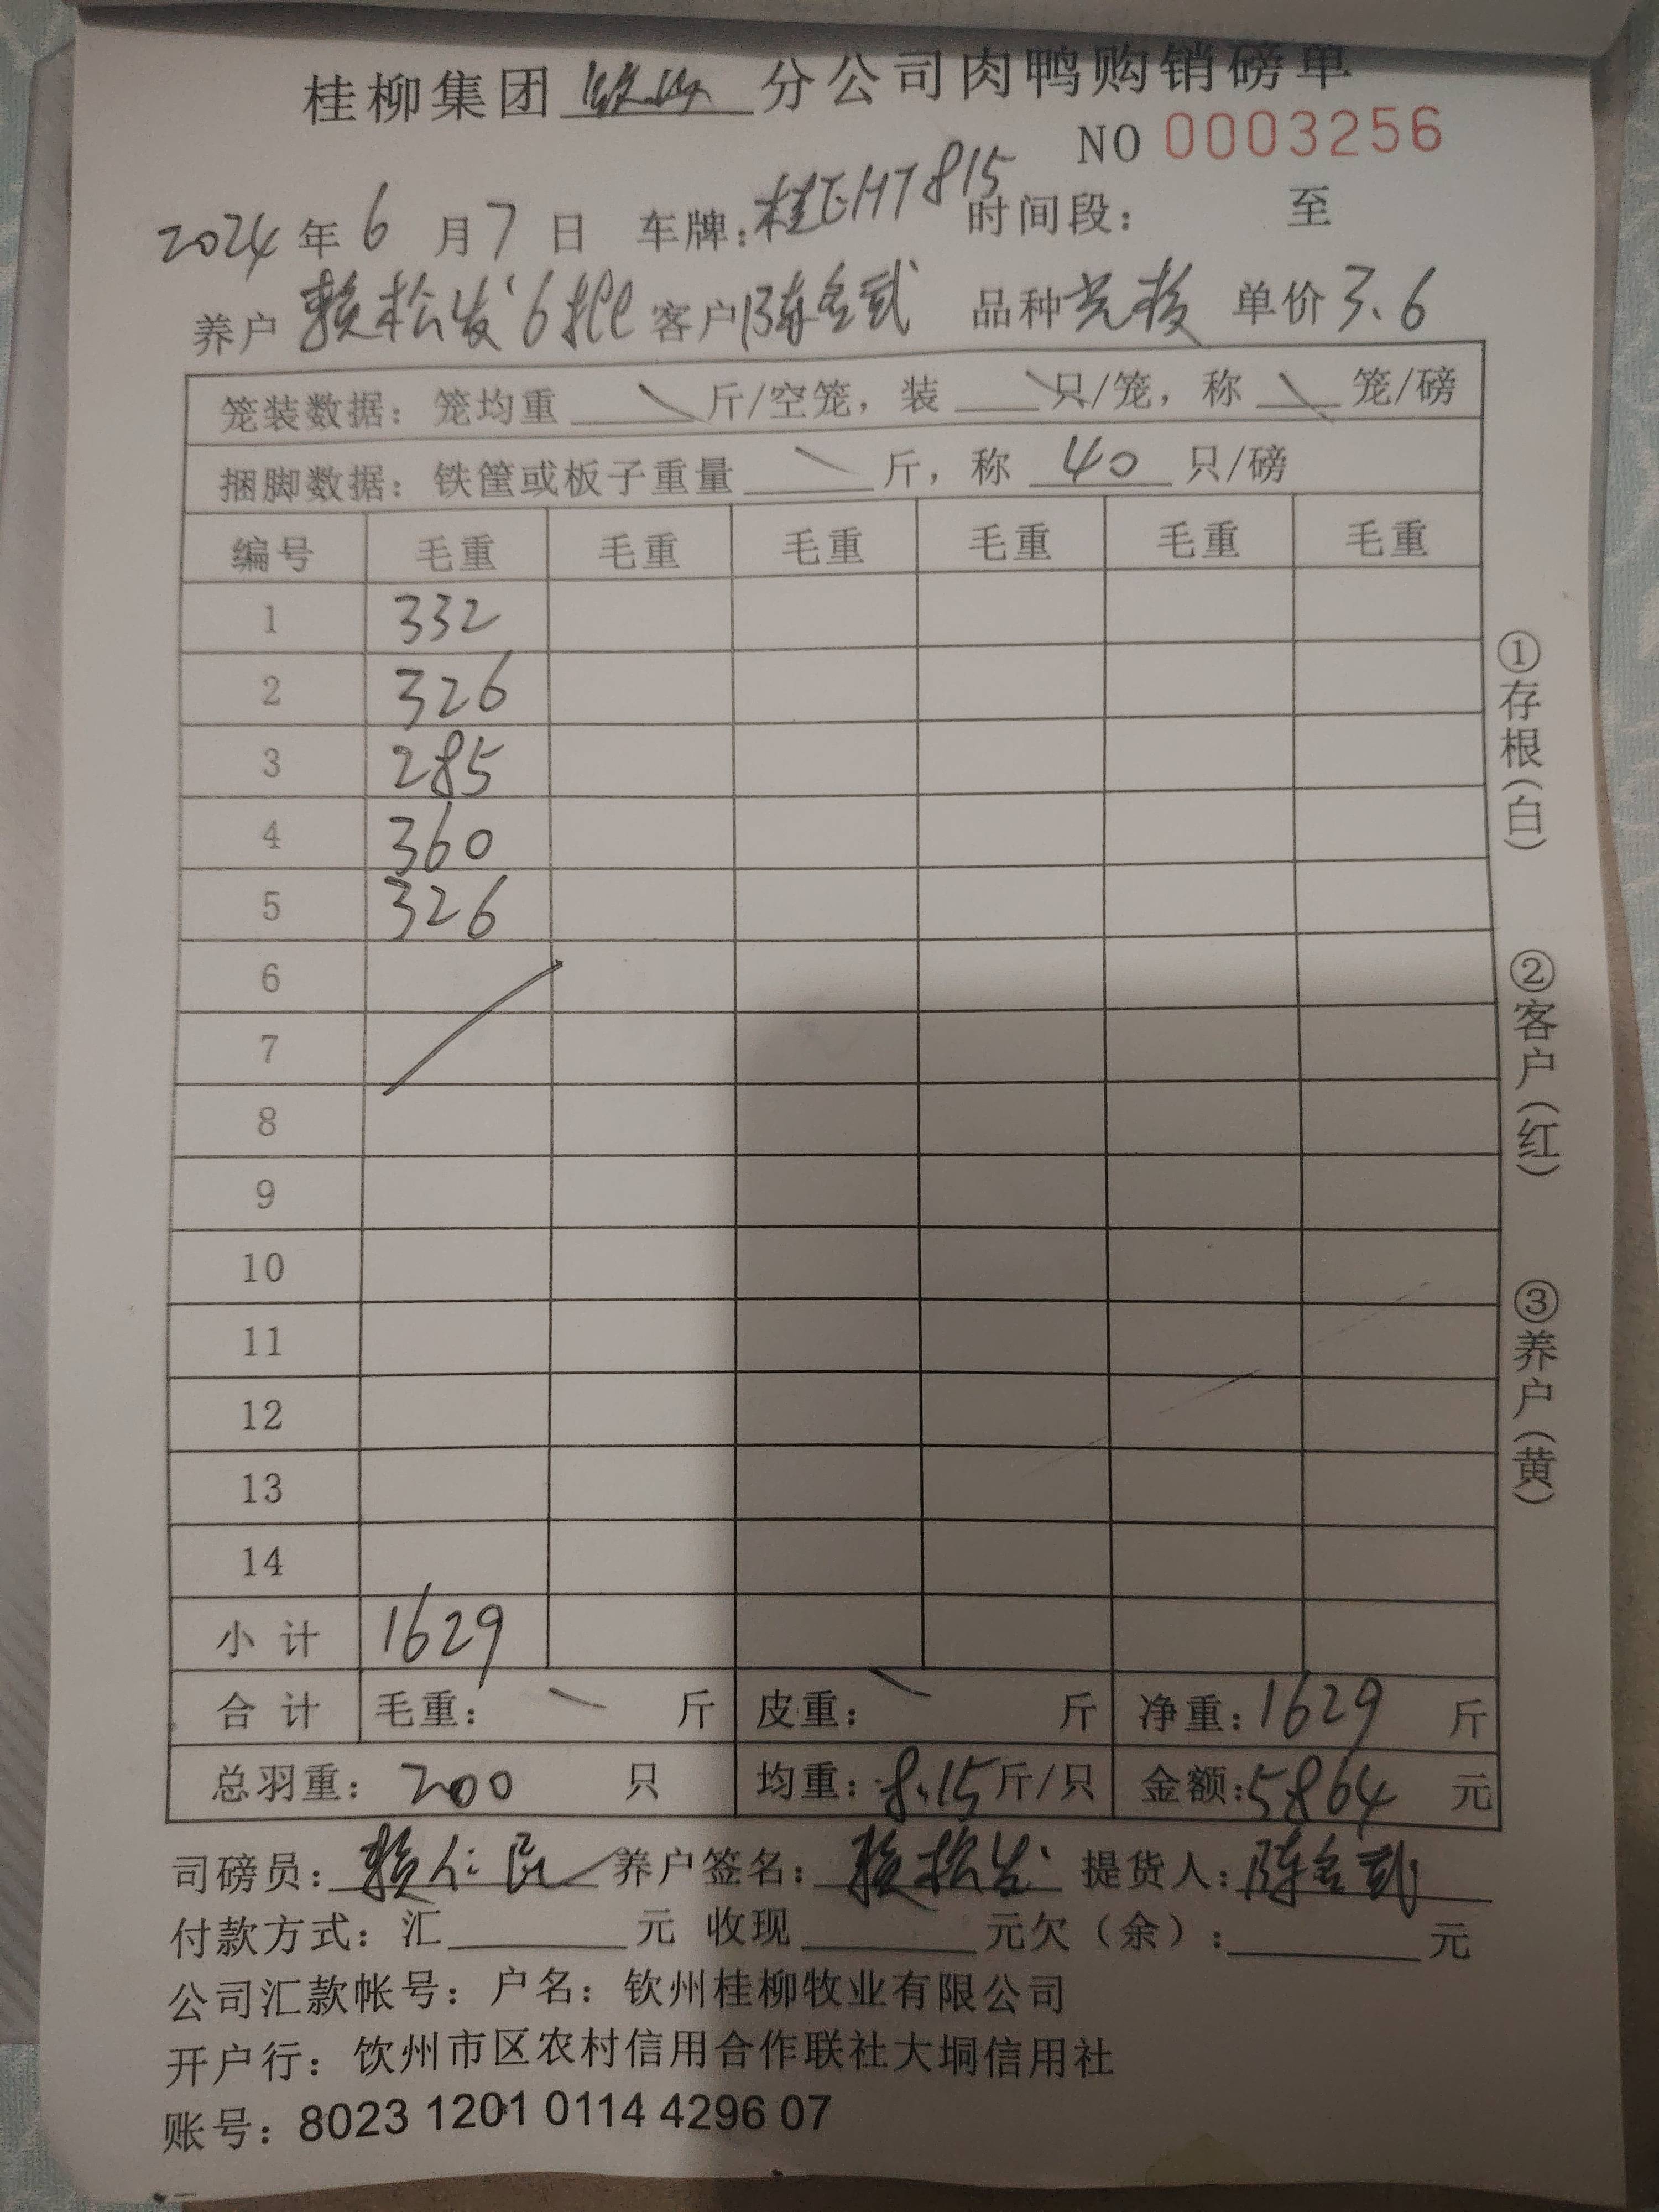 桂柳集团 钦州 分公司肉鸭购销磅单
NO 0003256
2024 年 6 月 7 日 车牌: 桂EHT815 时间段: 至
养户 赖松发 6批 客户 陈金武 品种 单价 3.6
笼装数据: 笼均重 斤/空笼, 装 只/笼, 称 笼/磅
捆脚数据: 铁筐或板子重量 斤, 称 40 只/磅
编号 毛重 毛重 毛重 毛重 毛重 毛重
1 332
2 326
3 285
4 360
5 326
6
7
8
9
10
11
12
13
14
小计 1629
合计 毛重: 斤 皮重: 斤 净重: 1629 斤
总羽重: 200 只 均重: 8.15 斤/只 金额: 5864 元
司磅员: 赖仁民 养户签名: 赖松发 提货人: 陈金武
付款方式: 汇 元 收现 元欠(余): 元
公司汇款帐号: 户名: 钦州桂柳牧业有限公司
开户行: 钦州市区农村信用合作联社大垌信用社
账号: 8023 1201 0114 4296 07
①存根(白)
②客户(红)
③养户(黄)